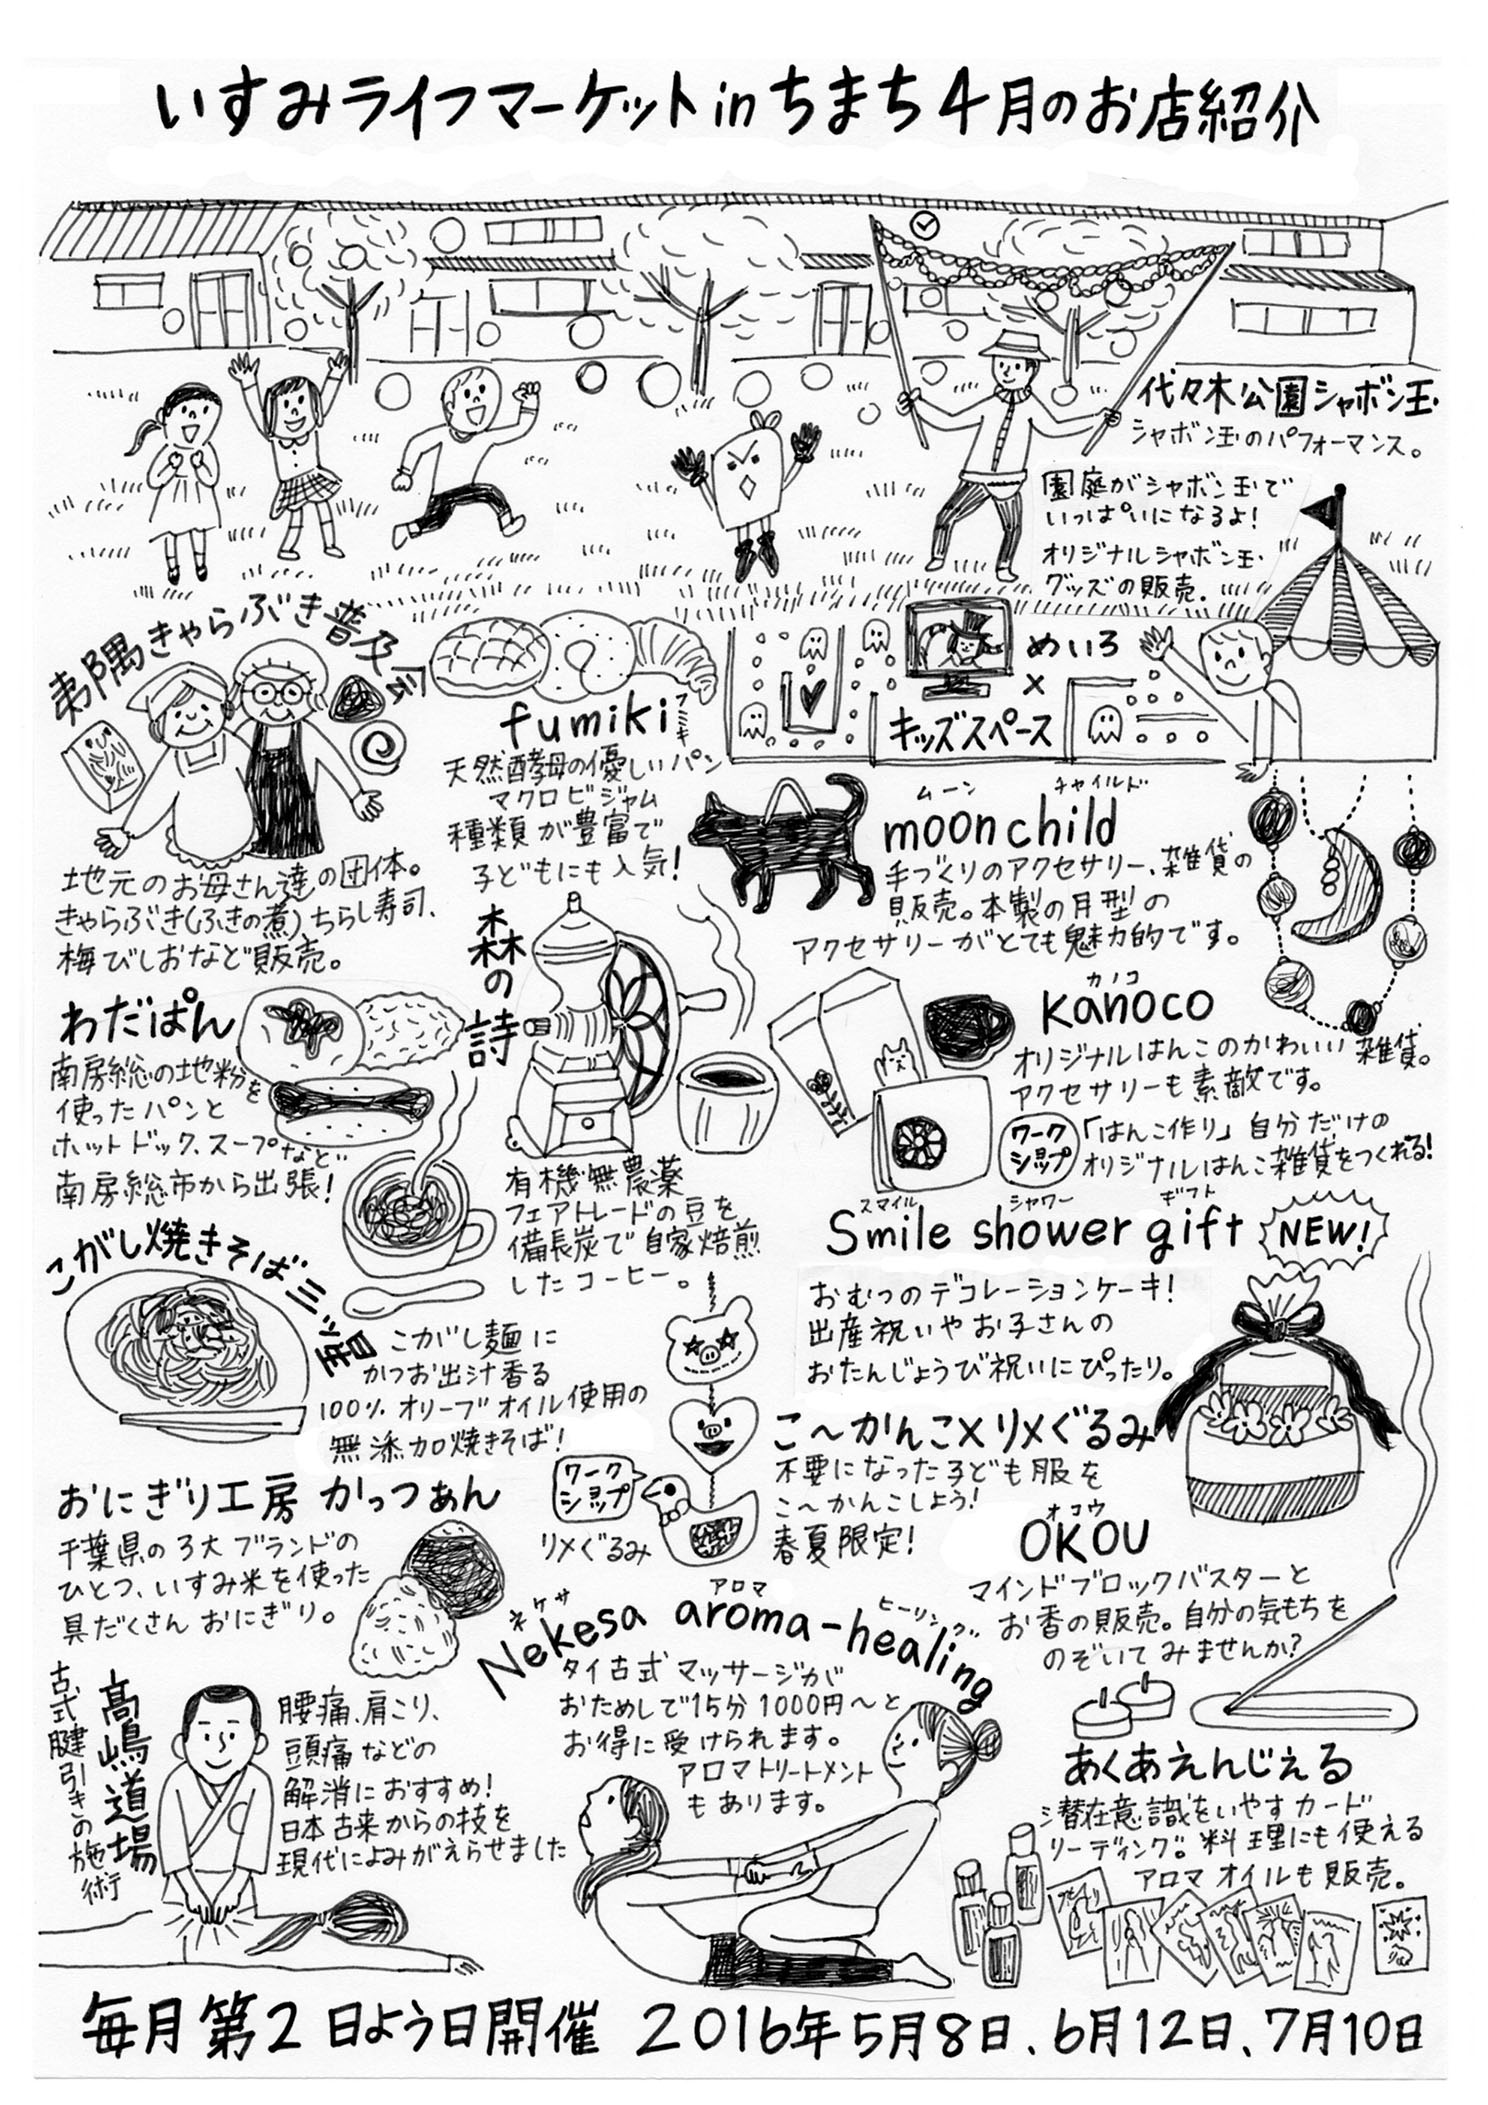 いすみライフマーケットinちまち4月のお店紹介
代々木公園シャボン玉
シャボン玉のパフォーマンス。
園庭がシャボン玉で
いっぱいになるよ!
オリジナルシャボン玉
グッズの販売。
夷隅きゃらぶき普及会
地元のお母さん達の団体。
きゃらぶき(ふきの煮)、ちらし寿司、
梅びしおなど販売。
fumiki
フミキ
天然酵母の優しいパン
マクロビジャム
種類が豊富で
子どもにも人気!
めいろ
×
キッズスペース
ムーン チャイルド
moon child
手づくりのアクセサリー、雑貨の
販売。本製の月型の
アクセサリーがとても魅力的です。
わだぱん
南房総の地粉を
使ったパンと
ホットドック、スープなど
南房総市から出張!
森の詩
有機・無農薬
フェアトレードの豆を
備長炭で自家焙煎
したコーヒー。
カノコ
Kanoco
オリジナルはんこのかわいい雑貨。
アクセサリーも素敵です。
ワーク
ショップ
「はんこ作り」自分だけの
オリジナルはんこ雑貨をつくれる!
スマイル シャワー ギフト
Smile shower gift
NEW!
おむつのデコレーションケーキ!
出産祝いやお子さんの
おたんじょうび祝いにぴったり。
こがし焼きそば三ツ星
こがし麺に
かつお出汁香る
100% オリーブオイル使用の
無添加焼きそば!
こ〜かんこ×リメぐるみ
不要になった子ども服を
こ〜かんこしよう!
春夏限定!
ワーク
ショップ
リメぐるみ
おにぎり工房 かっつぁん
千葉県の3大ブランドの
ひとつ、いすみ米を使った
具だくさんおにぎり。
オコウ
OKOU
マインドブロックバスターと
お香の販売。自分の気もちを
のぞいてみませんか?
ネケサ アロマ ヒーリング
Nekesa aroma-healing
タイ古式マッサージが
おためしで15分1000円〜と
お得に受けられます。
アロマトリートメント
もあります。
高嶋道場
古式腱引きの施術
腰痛、肩こり、
頭痛などの
解消におすすめ!
日本古来からの技を
現代によみがえらせました
あくあえんじぇる
潜在意識をいやすカード
リーディング。料理にも使える
アロマオイルも販売。
毎月第2日よう日開催 2016年5月8日、6月12日、7月10日